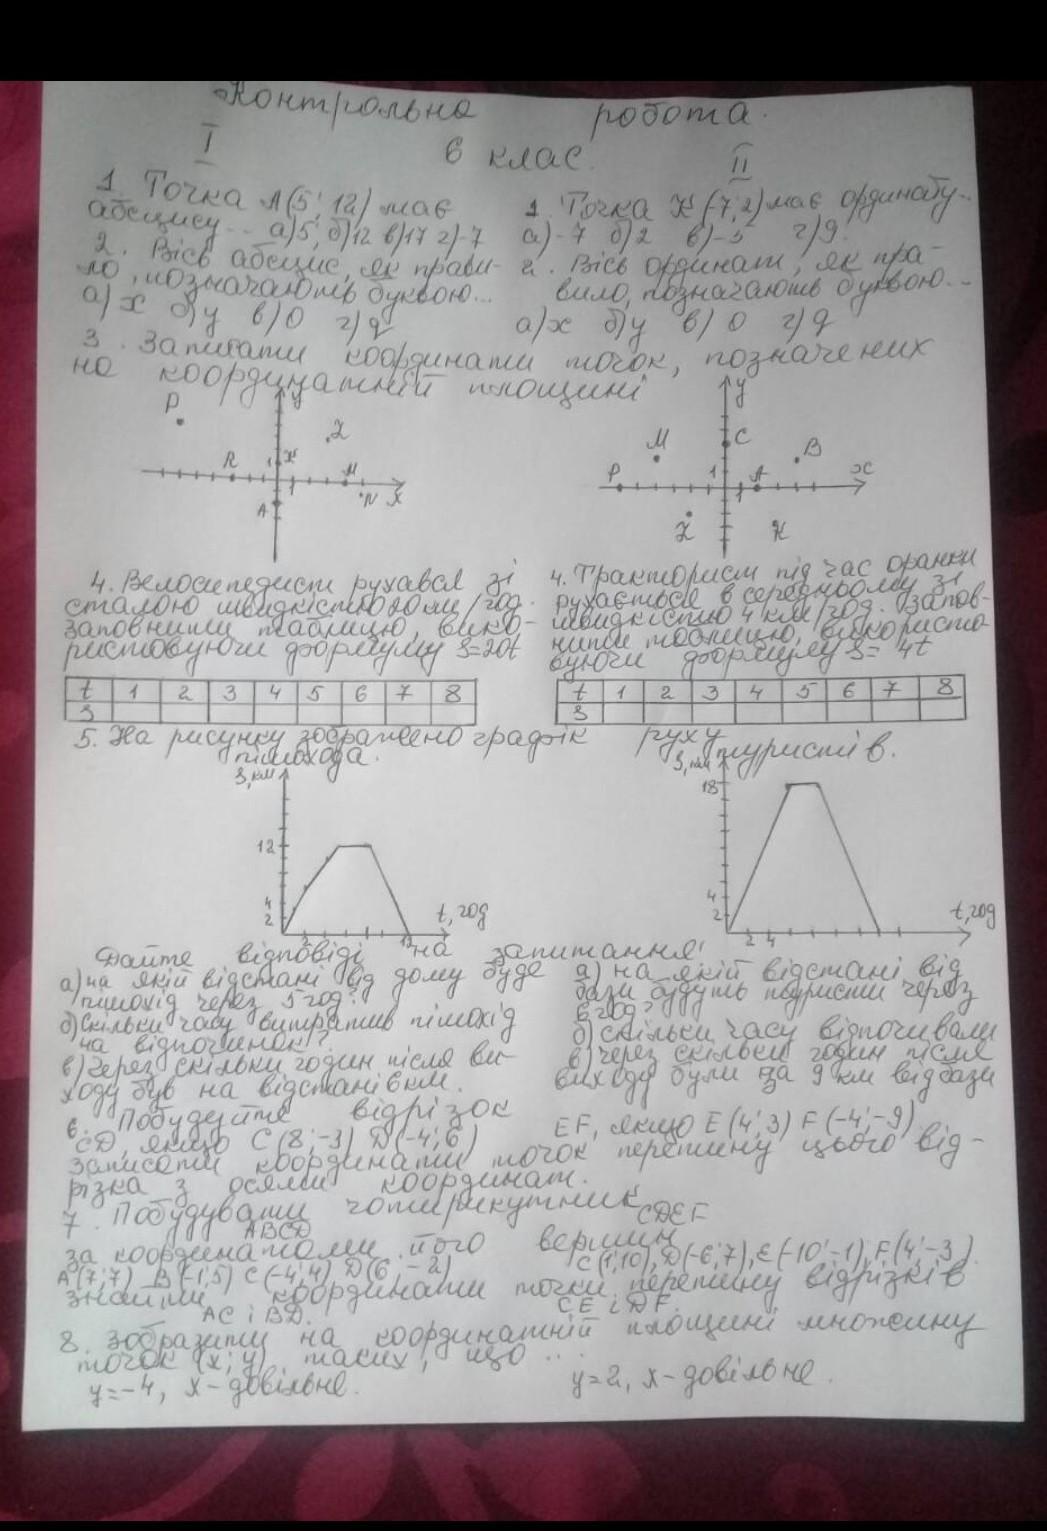 Контрольна робота.
6 клас.
I
1. Точка А(5; 12) має
абсцису... а)5; б)12 в)17 г)-7
2. Вісь абсцис, як прави-
ло, позначають буквою...
а) х б) у в) 0 г) q
II
1. Точка К(-7; 2) має ординату...
а)-7 б)2 в)-5 г)9.
2. Вісь ординат, як пра-
вило, позначають буквою...
а)х б)у в) 0 г) q
3. Записати координати точок, позначених
на координатній площині
P
y
Z
R
1
K
M
1
N
x
A
y
C
M
B
x
P
1
A
1
Z
K
4. Велосипедист рухався зі
сталою швидкістю 20 км/год.
заповнити таблицю, вико-
ристовуючи формулу S=20t
t 1 2 3 4 5 6 7 8
S
4. Тракторист під час оранки
рухається в середньому зі
швидкістю 4 км/год. Запов-
нити таблицю, використо-
вуючи формулу S= 4t
t 1 2 3 4 5 6 7 8
S
5. На рисунку зображено графік руху
пішохода.
туристів.
S, км
12
4
2
2
12
t, год
S, км
18
4
2
2 4
t, год
Дайте відповіді на запитання:
а) на якій відстані від дому буде
пішохід через 5 год?
б) скільки часу витратив пішохід
на відпочинок?
в) через скільки годин після ви-
ходу був на відстані 6 км.
а) на якій відстані від
бази будуть туристи через
6 год?
б) скільки часу відпочивали
в) через скільки годин після
виходу були за 9 км від бази
6. Побудуйте відрізок
CD, якщо C(8; -3) D(-4; 6)
EF, якщо E(4; 3) F(-4; -9)
записати координати точок перетину цього від-
різка з осями координат.
7. Побудувати чотирикутник
ABCD
CDEF
за координатами його вершин
A(7; 7) B(-1; 5) C(-4; 4) D(6; -2)
C(1; 10), D(-6; 7), E(-10; -1), F(4; -3)
знайти координати точки перетину відрізків
AC і BD.
CE і DF.
8. Зобразити на координатній площині множину
точок (х; у) таких, що ...
у=-4, х-довільне.
у=2, х-довільне.